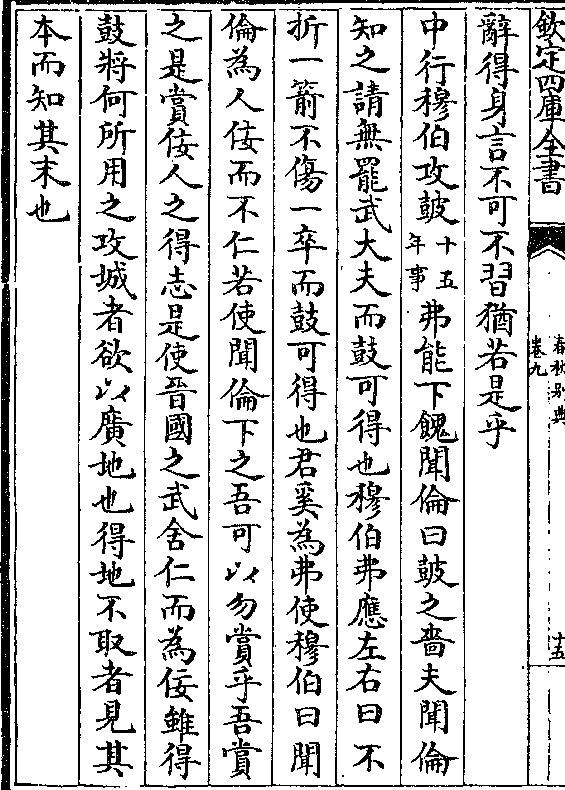 欽定四庫全書
春秋别典
卷九
十五
辭得身言不可不習猶若是乎
中行穆伯攻鼓十五年事弗能下餽聞倫曰鼓之嗇夫聞倫
知之請無罷武大夫而鼓可得也穆伯弗應左右曰不
折一箭不傷一卒而鼓可得也君奚為弗使穆伯曰聞
倫為人佞而不仁若使聞倫下之吾可以勿賞乎吾賞
之是賞佞人之得志是使晉國之武舍仁而為佞雖得
鼓將何所用之攻城者欲以廣地也得地不取者見其
本而知其末也